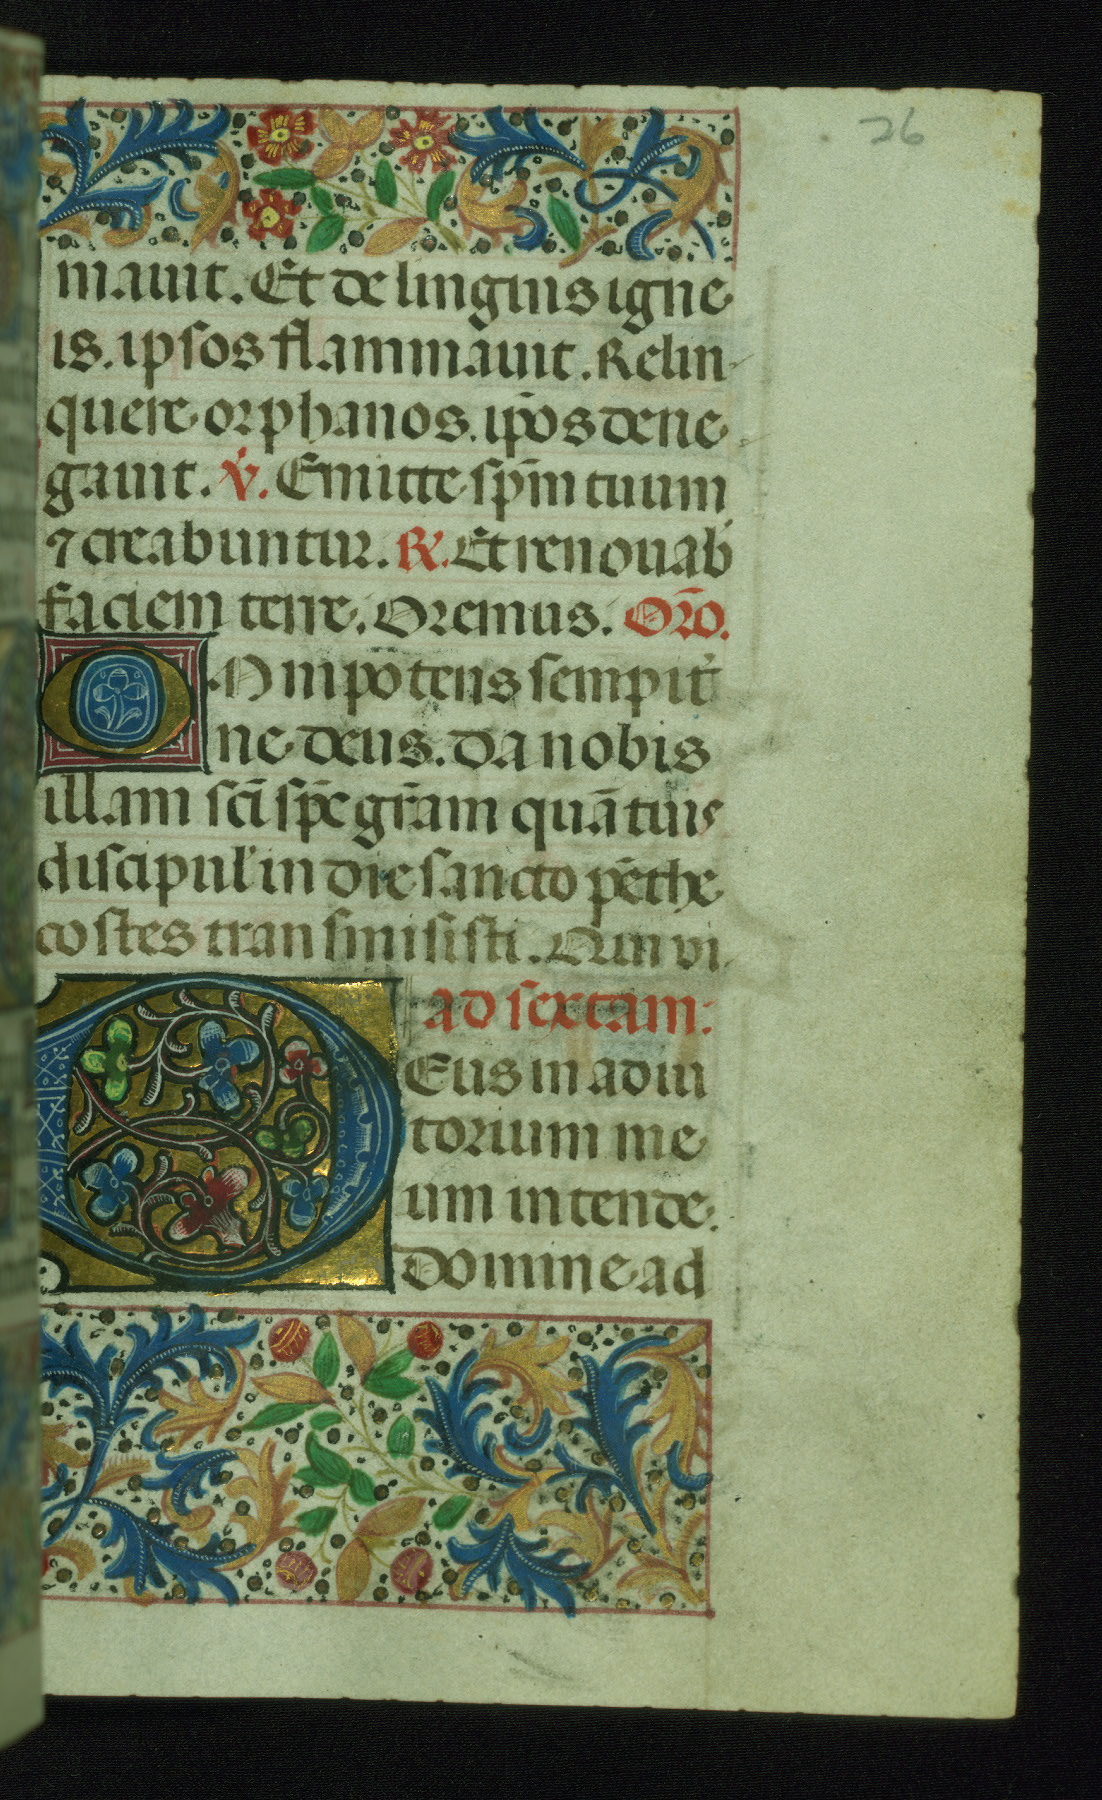 26
mauit. Et de linguis igne
is. ipsos flammauit. Relin-
quere orphanos. ip̄os dene
gauit. v̇. Emitte sp̄m tuum
⁊ creabuntur. ℞. Et renouab'
faciem terre. Oremus. Or̄o.
Omnipōtens sempit̾
ne deus. da nobis
illam sc̄i sp̄c gr̄am quā tuis
discipul' in die sancto pēthe
costes transmisisti. Qui vi
ad sextam:
Deus in adiu
torium me
um intende.
Domine ad